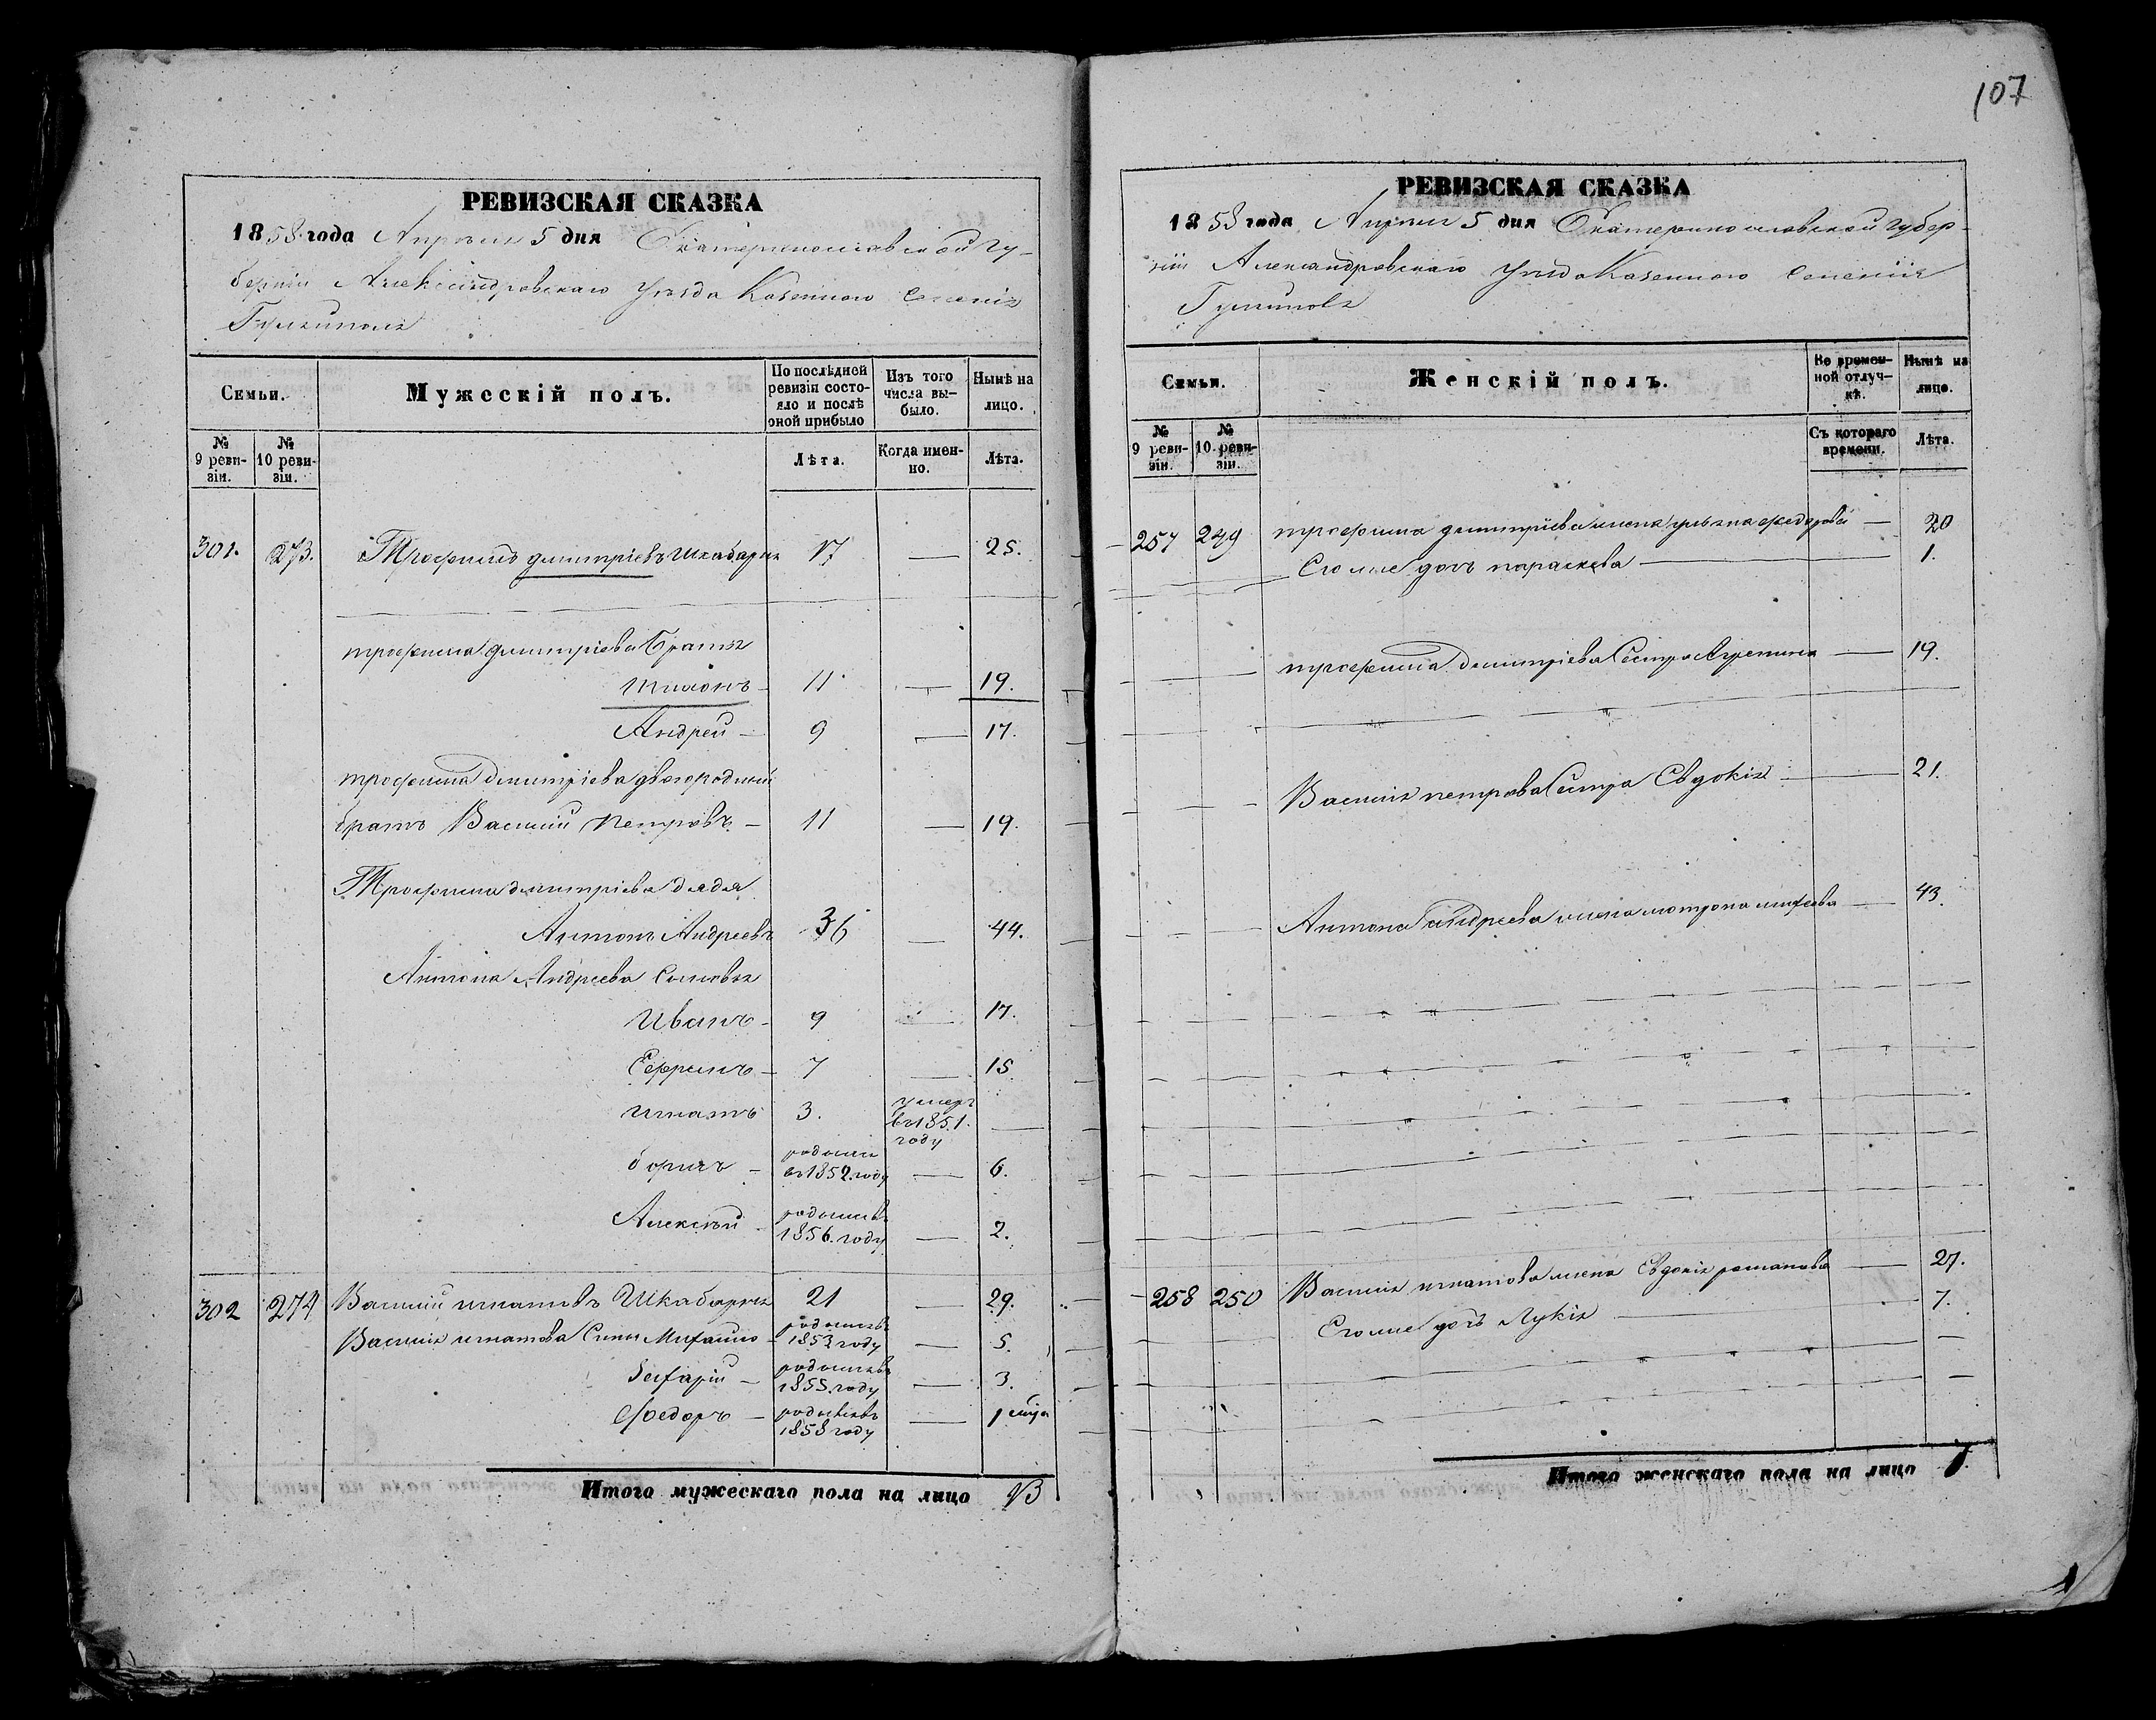 107
РЕВИЗСКАЯ СКАЗКА
1858 года Апреля 5 дня Екатеринославской Гу-
берніи Александровскаго уезда Казенного Селенія
Гуляйполя
Семьи.
Мужескій полъ.
По послѣдней ревизіи состояло и послѣ оной прибыло
Изъ того числа вы-было.
Нынѣ на лицо.
№ 9 реви-зіи.
№ 10 реви-зіи.
Лѣта.
Когда имен-но.
Лѣта.
301. 273. Трофимъ димитріевъ Шкабарня 17 — 25.
трофима димитріева Братья
тихонъ 11 — 19.
Андрей — 9 — 17.
трофима димитріева двоюродный
братъ Василий петровъ — 11 — 19.
Трофима димитріева дядя
Антонъ Андреевъ 36 — 44.
Антона Андреева Сыновья
Иванъ — 9 — 17.
Ефримъ — 7 — 15.
игнатъ 3. умеръ въ 1851. году —
борисъ — родился въ 1852. году — 6.
Алексѣй — родился въ 1856. году — 2.
302 274 Василий игнатовъ Шкабарня 21 — 29.
Василия игнатова Сыны Михайло — родился въ 1853 году — 5.
Захарій — родился въ 1855. году — 3.
Федоръ — родился въ 1858 году — 1
Итого мужескаго пола на лицо 13
РЕВИЗСКАЯ СКАЗКА
1858 года Апреля 5 дня Екатеринославской губер-
ніи Александровскаго уезда Казенного Селенія
Гуляйполя
Семьи.
Женскій полъ.
Во времен-ной отлуч-кѣ.
Нынѣ на лицо.
№ 9 реви-зіи.
№ 10 реви-зіи.
Съ котораго времени.
Лѣта.
257 249 трофима димитріева жена ульяна федорова — 20
Его же дочь параскева — 1.
трофима димитріева Сестра Агрепина — 19.
Василия петрова Сестра Евдокія — 21.
Антона андреева жена мотрона — 43.
258 250 Василия игнатова жена Евдокія романова — 27.
Его же дочь Лукія — 7.
Итого женскаго пола на лицо 7